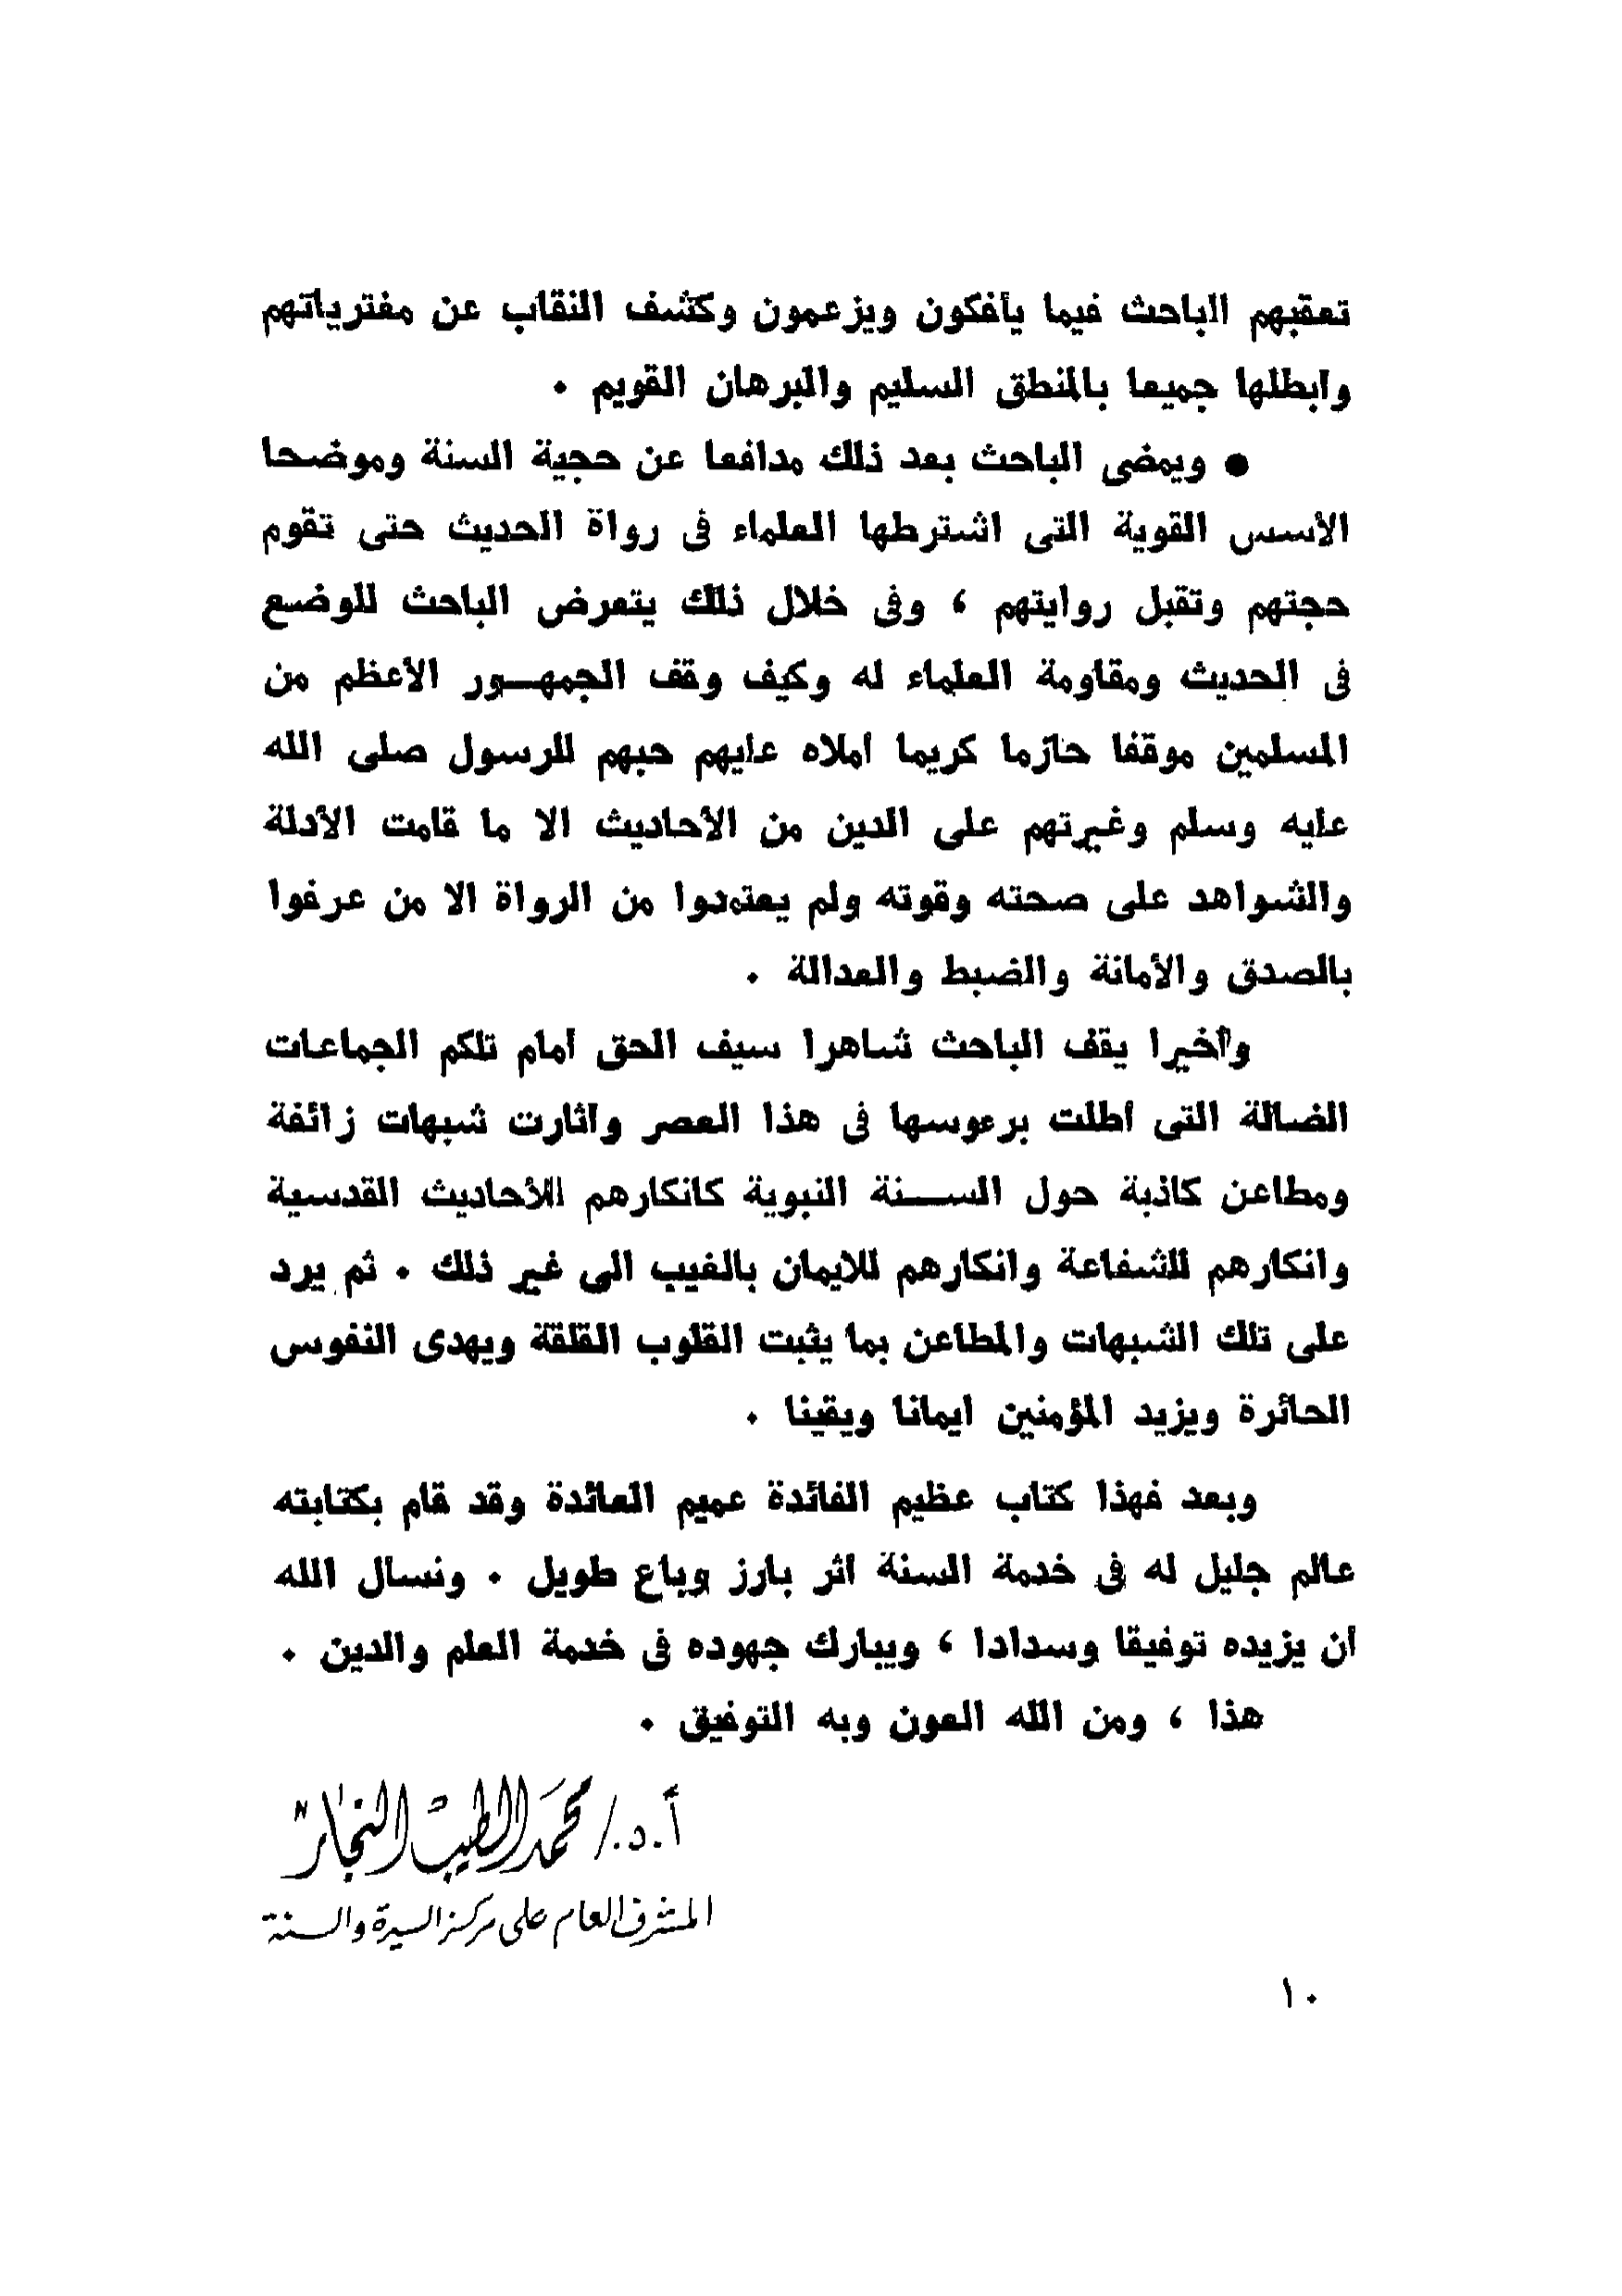 تعقبهم الباحث فيما يأفكون ويزعمون وكشف النقاب عن مفترياتهم
وأبطلها جميعا بالمنطق السليم والبرهان القويم .
● ويمضى الباحث بعد ذلك مدافعا عن حجية السنة وموضحا
الأسس القوية التى اشترطها العلماء فى رواة الحديث حتى تقوم
حجتهم وتقبل روايتهم ، وفى خلال ذلك يتعرض الباحث للوضع
فى الحديث ومقاومة العلماء له وكيف وقف الجمهـور الأعظم من
المسلمين موقفا حازما كريما أملاه عليهم حبهم للرسول صلى الله
عليه وسلم وغيرتهم على الدين من الأحاديث الا ما قامت الأدلة
والشواهد على صحته وقوته ولم يعتمدوا من الرواة الا من عرفوا
بالصدق والأمانة والضبط والعدالة .
وأخيرا يقف الباحث شاهرا سيف الحق أمام تلكم الجماعات
الضالة التى أطلت برءوسها فى هذا العصر وأثارت شبهات زائفة
ومطاعن كاذبة حول الســنة النبوية كانكارهم للأحاديث القدسية
وانكارهم للشفاعة وانكارهم للايمان بالغيب الى غير ذلك . ثم يرد
على تلك الشبهات والمطاعن بما يثبت القلوب القلقة ويهدى النفوس
الحائرة ويزيد المؤمنين ايمانا ويقينا .
وبعد فهذا كتاب عظيم الفائدة عميم العائدة وقد قام بكتابته
عالم جليل له فى خدمة السنة أثر بارز وباع طويل . ونسأل الله
أن يزيده توفيقا وسدادا ، ويبارك جهوده فى خدمة العلم والدين .
هذا ، ومن الله العون وبه التوفيق .
أ.د./ محمد الطيب النجار
المشرف العام على مركز السيرة والسنة
١٠